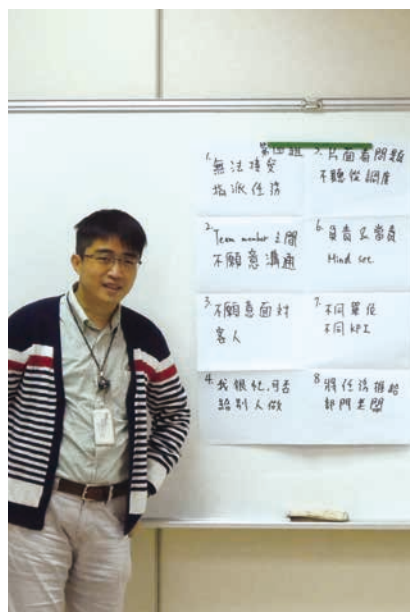 第四組
1. 無法接受
指派任務
2. Team member 之間
不願意溝通
3. 不願意面對
客人
4. 我很忙,可否
給別人做
5. 片面看問題
不聽從調度
6. 負責又當責
Mind set
7. 不同單位
不同 KPI
8. 將任務推給
部門老闆